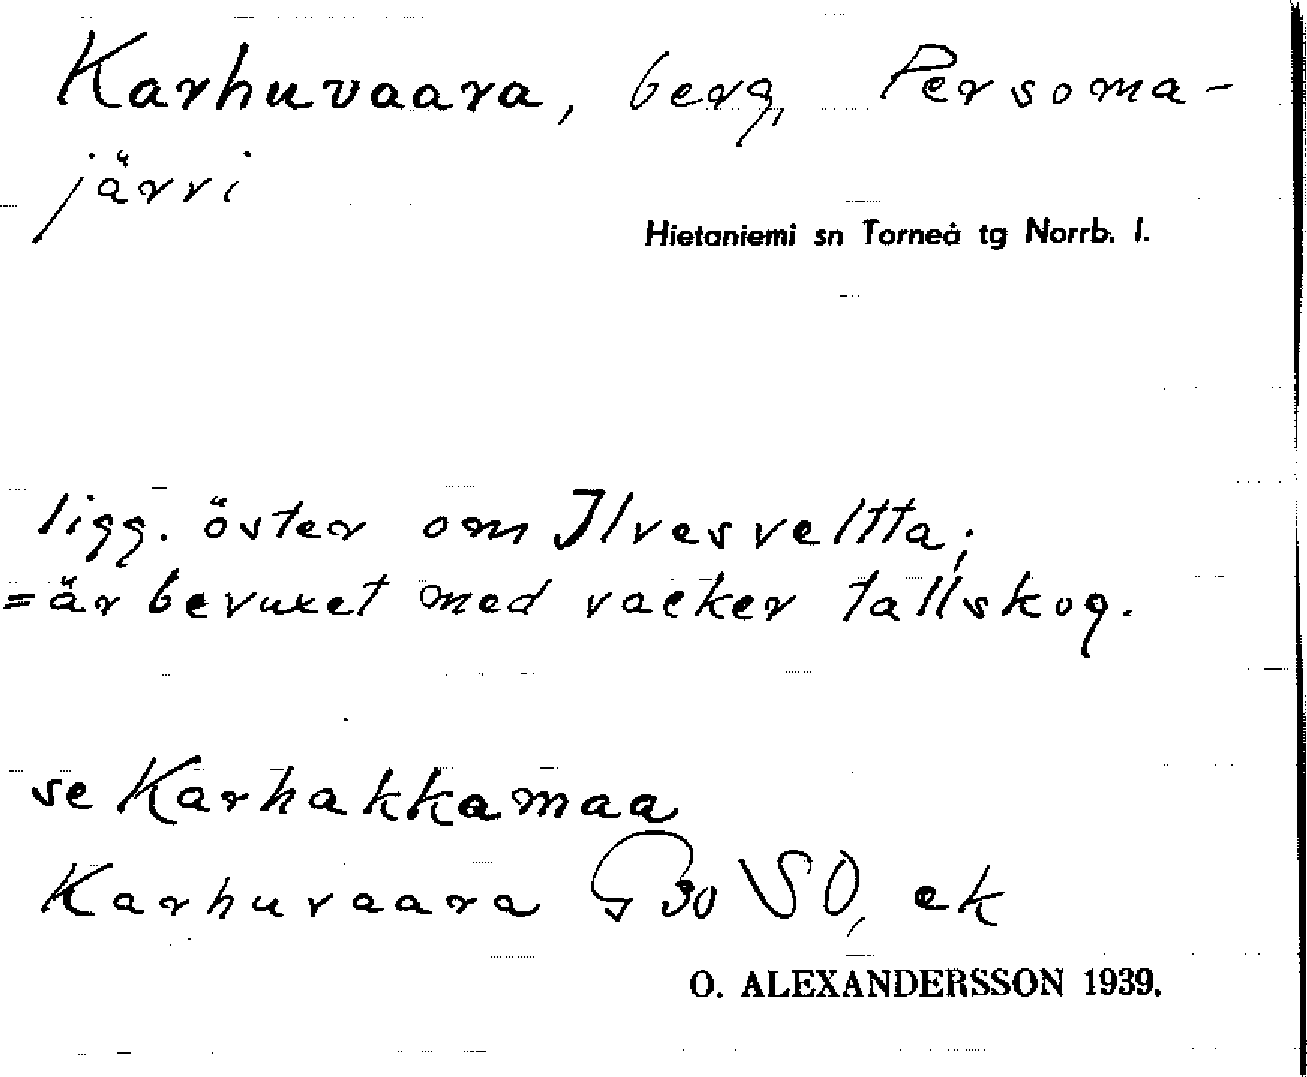 Karhuvaara, berg, Persoma-
järvi
Hietaniemi sn Torneå tg Norrb. l.
ligg. öster om Ilvesveltta;
=är bevuxet med vacker tallskog.
se Karhakkamaa
Karhuvaara G 30 VSO, ek
O. ALEXANDERSSON 1939.